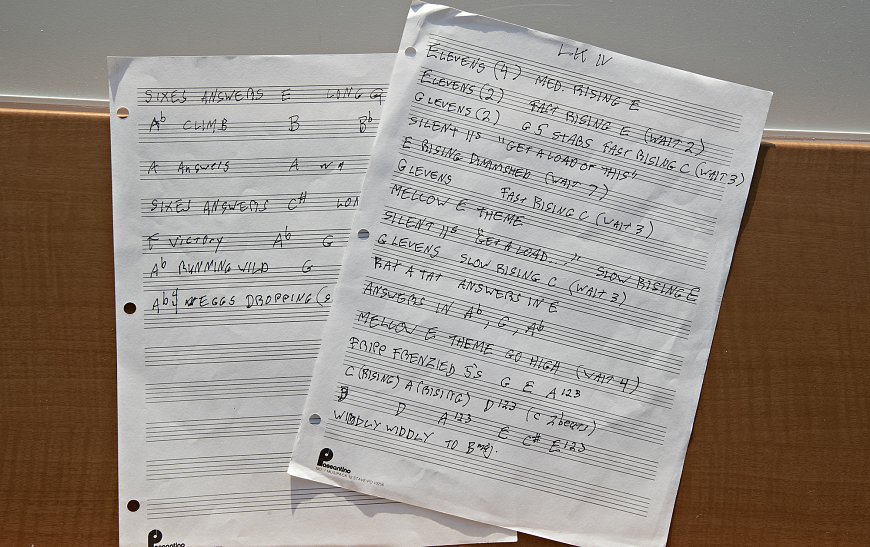 SIXES ANSWERS E LONG G
Ab CLIMB B Bb
A ANSWERS A
SIXES ANSWERS C#
F VICTORY Ab G
Ab RUNNING WILD G
EGGS DROPPING
Passantino
LK IV
ELEVENS (4) MED. RISING E
ELEVENS (2) FAST RISING E (WAIT 2)
GLEVENS (2) G 5 STABS FAST RISING C (WAIT 3)
SILENT 11s "GET A LOAD OF THIS"
E RISING DIMINISHED (WAIT 7)
GLEVENS FAST RISING C (WAIT 3)
MELLOW E THEME
SILENT 11s "GET A LOAD...." SLOW RISING E
GLEVENS SLOW RISING C (WAIT 3)
RAT A TAT ANSWERS IN E
ANSWERS IN Ab, G, Ab
MELLOW E THEME GO HIGH (WAIT 4)
FRIPP FRENZIED 5s G E A123
C (RISING) A (RISING) D123 (C 2 beats)
D A123 E C# E123
WIDDLY WIDDLY TO B maj.
Passantino